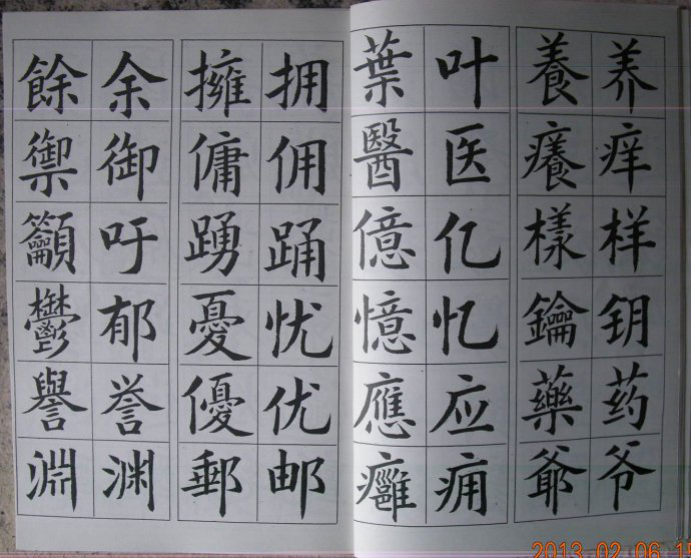 养痒样钥药爷
養癢樣鑰藥爺
叶医亿忆应痈
葉醫億憶應癰
拥佣踊忧优邮
擁傭踴憂優郵
余御吁郁誉渊
餘禦籲鬱譽淵
2013.02.06